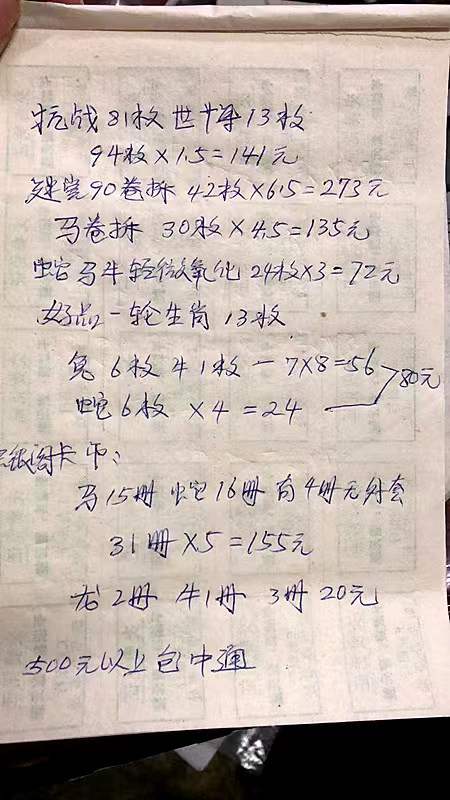 抗战81枚 世妇13枚
94枚×1.5=141元
建党90卷拆 42枚×6.5=273元
马卷拆 30枚×4.5=135元
蛇马牛轻微氧化 24枚×3=72元
好品一轮生肖 13枚
兔6枚 牛1枚 — 7×8=56
蛇6枚 ×4=24 80元
阁卡币:
马15册 蛇16册 有4册无外套
31册×5=155元
龙2册 牛1册 3册 20元
500元以上包中通